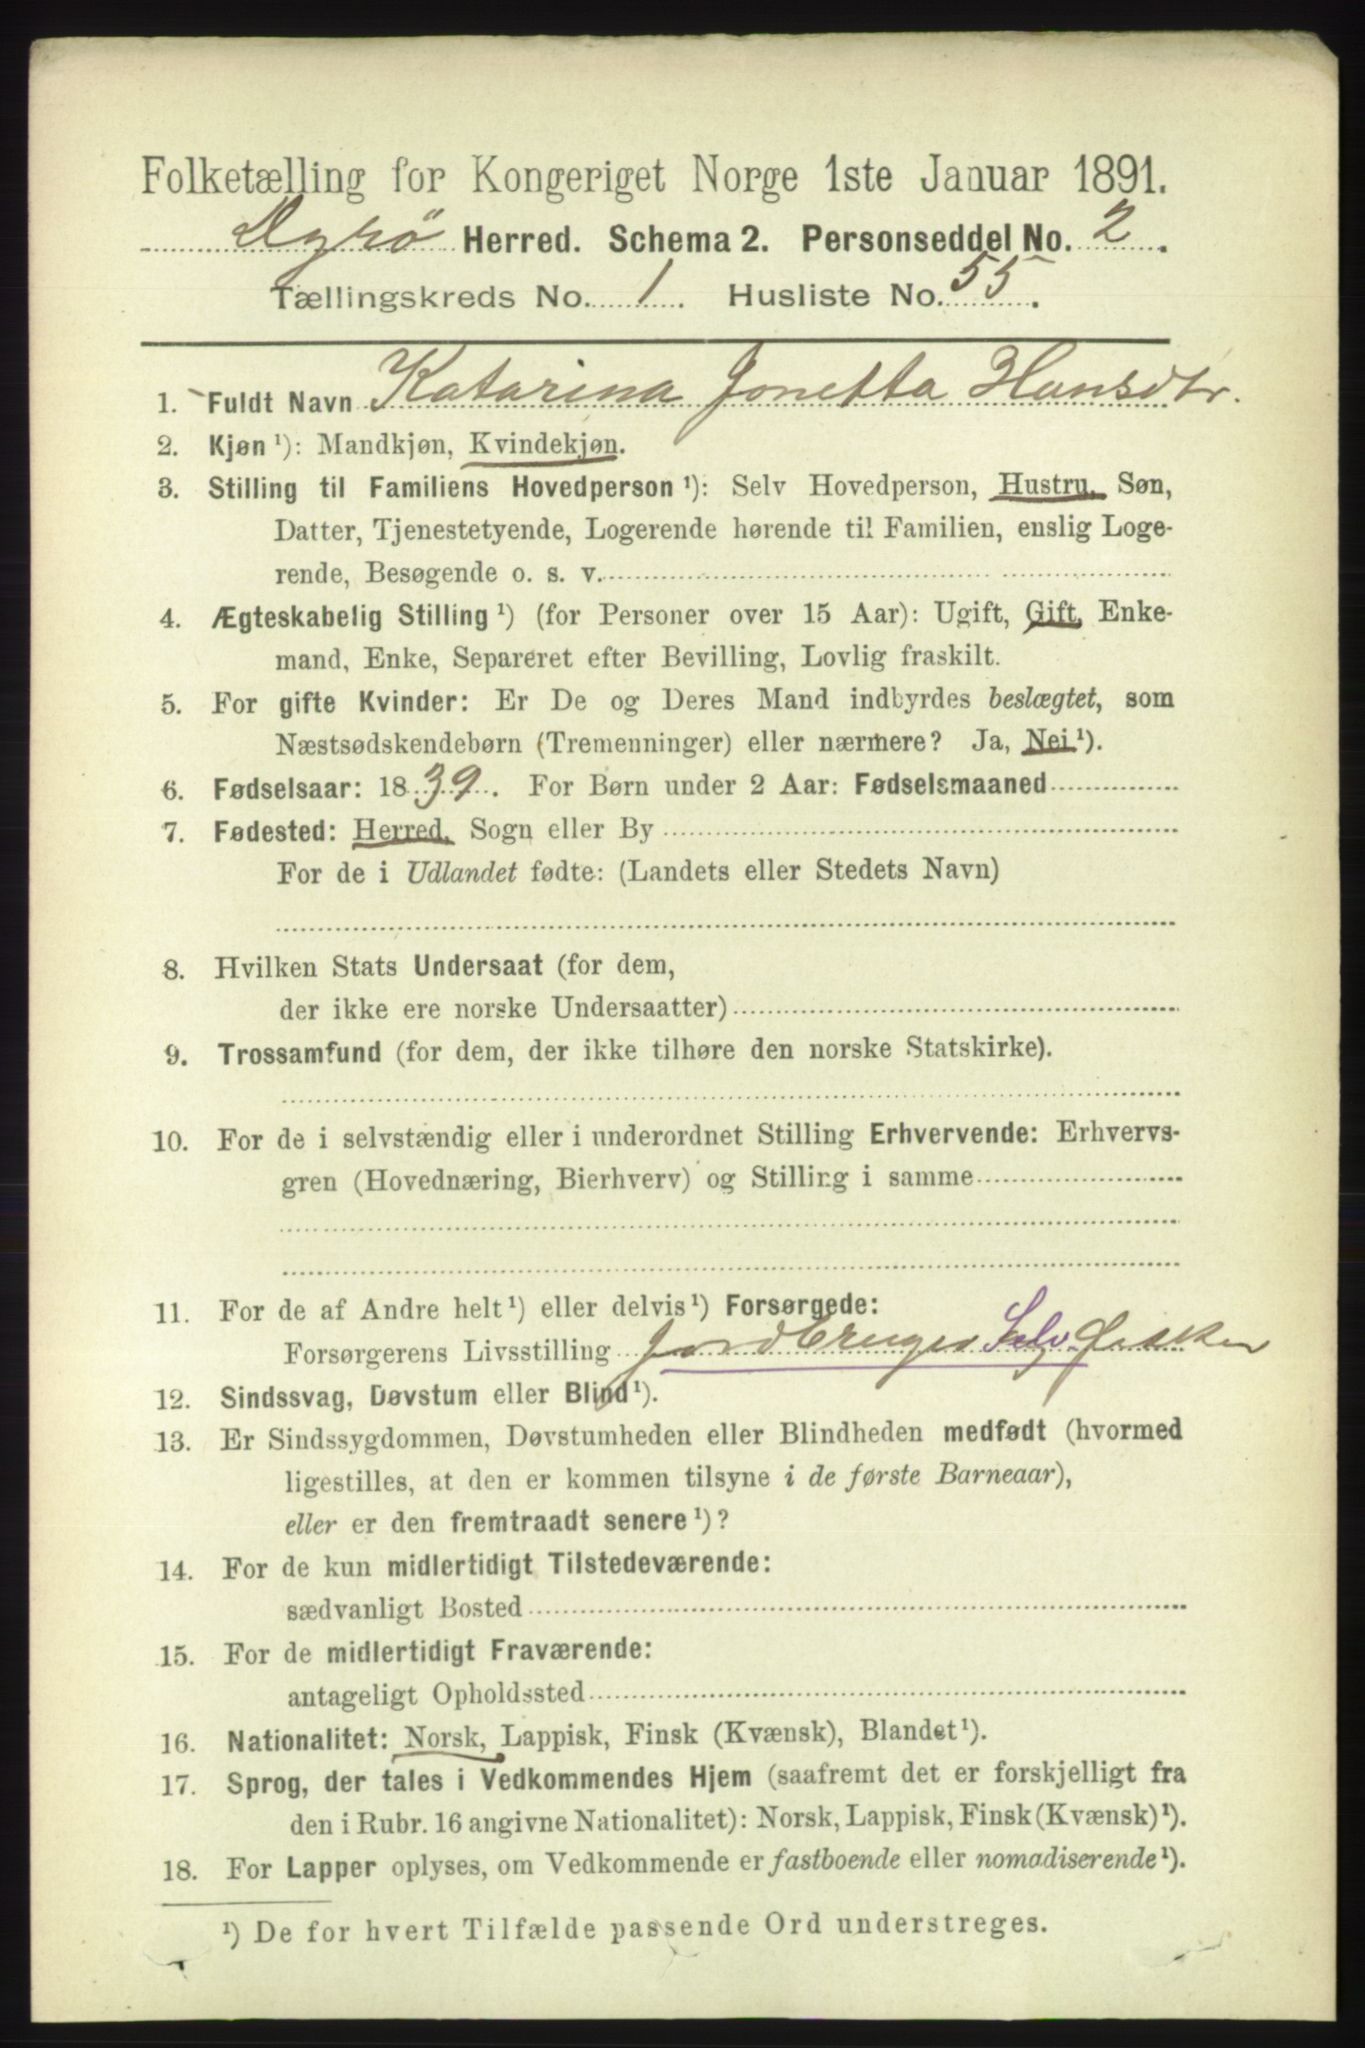 Folketælling for Kongeriget Norge 1ste Januar 1891.
Dyrö Herred. Schema 2. Personseddel No. 2.
Tællingskreds No. 1. Husliste No. 55.
1. Fuldt Navn Katarina Jonetta Hansdtr.
2. Kjøn ¹): Mandkjøn, Kvindekjøn.
3. Stilling til Familiens Hovedperson ¹): Selv Hovedperson, Hustru, Søn,
Datter, Tjenestetyende, Logerende hørende til Familien, enslig Loge-
rende, Besøgende o. s. v.
4. Ægteskabelig Stilling ¹) (for Personer over 15 Aar): Ugift, Gift, Enke-
mand, Enke, Separeret efter Bevilling, Lovlig fraskilt.
5. For gifte Kvinder: Er De og Deres Mand indbyrdes beslægtet, som
Næstsødskendebørn (Tremenninger) eller nærmere? Ja, Nei ¹).
6. Fødselsaar: 1839. For Børn under 2 Aar: Fødselsmaaned
7. Fødested: Herred, Sogn eller By
For de i Udlandet fødte: (Landets eller Stedets Navn)
8. Hvilken Stats Undersaat (for dem,
der ikke ere norske Undersaatter)
9. Trossamfund (for dem, der ikke tilhøre den norske Statskirke).
10. For de i selvstændig eller i underordnet Stilling Erhvervende: Erhvervs-
gren (Hovednæring, Bierhverv) og Stilling i samme
11. For de af Andre helt ¹) eller delvis ¹) Forsørgede:
Forsørgerens Livsstilling Jordbruger Selv
12. Sindssvag, Døvstum eller Blind ¹).
13. Er Sindssygdommen, Døvstumheden eller Blindheden medfødt (hvormed
ligestilles, at den er kommen tilsyne i de første Barneaar),
eller er den fremtraadt senere ¹)?
14. For de kun midlertidigt Tilstedeværende:
sædvanligt Bosted
15. For de midlertidigt Fraværende:
antageligt Opholdssted
16. Nationalitet: Norsk, Lappisk, Finsk (Kvænsk), Blandet ¹).
17. Sprog, der tales i Vedkommendes Hjem (saafremt det er forskjelligt fra
den i Rubr. 16 angivne Nationalitet): Norsk, Lappisk, Finsk (Kvænsk) ¹).
18. For Lapper oplyses, om Vedkommende er fastboende eller nomadiserende ¹).
¹) De for hvert Tilfælde passende Ord understreges.